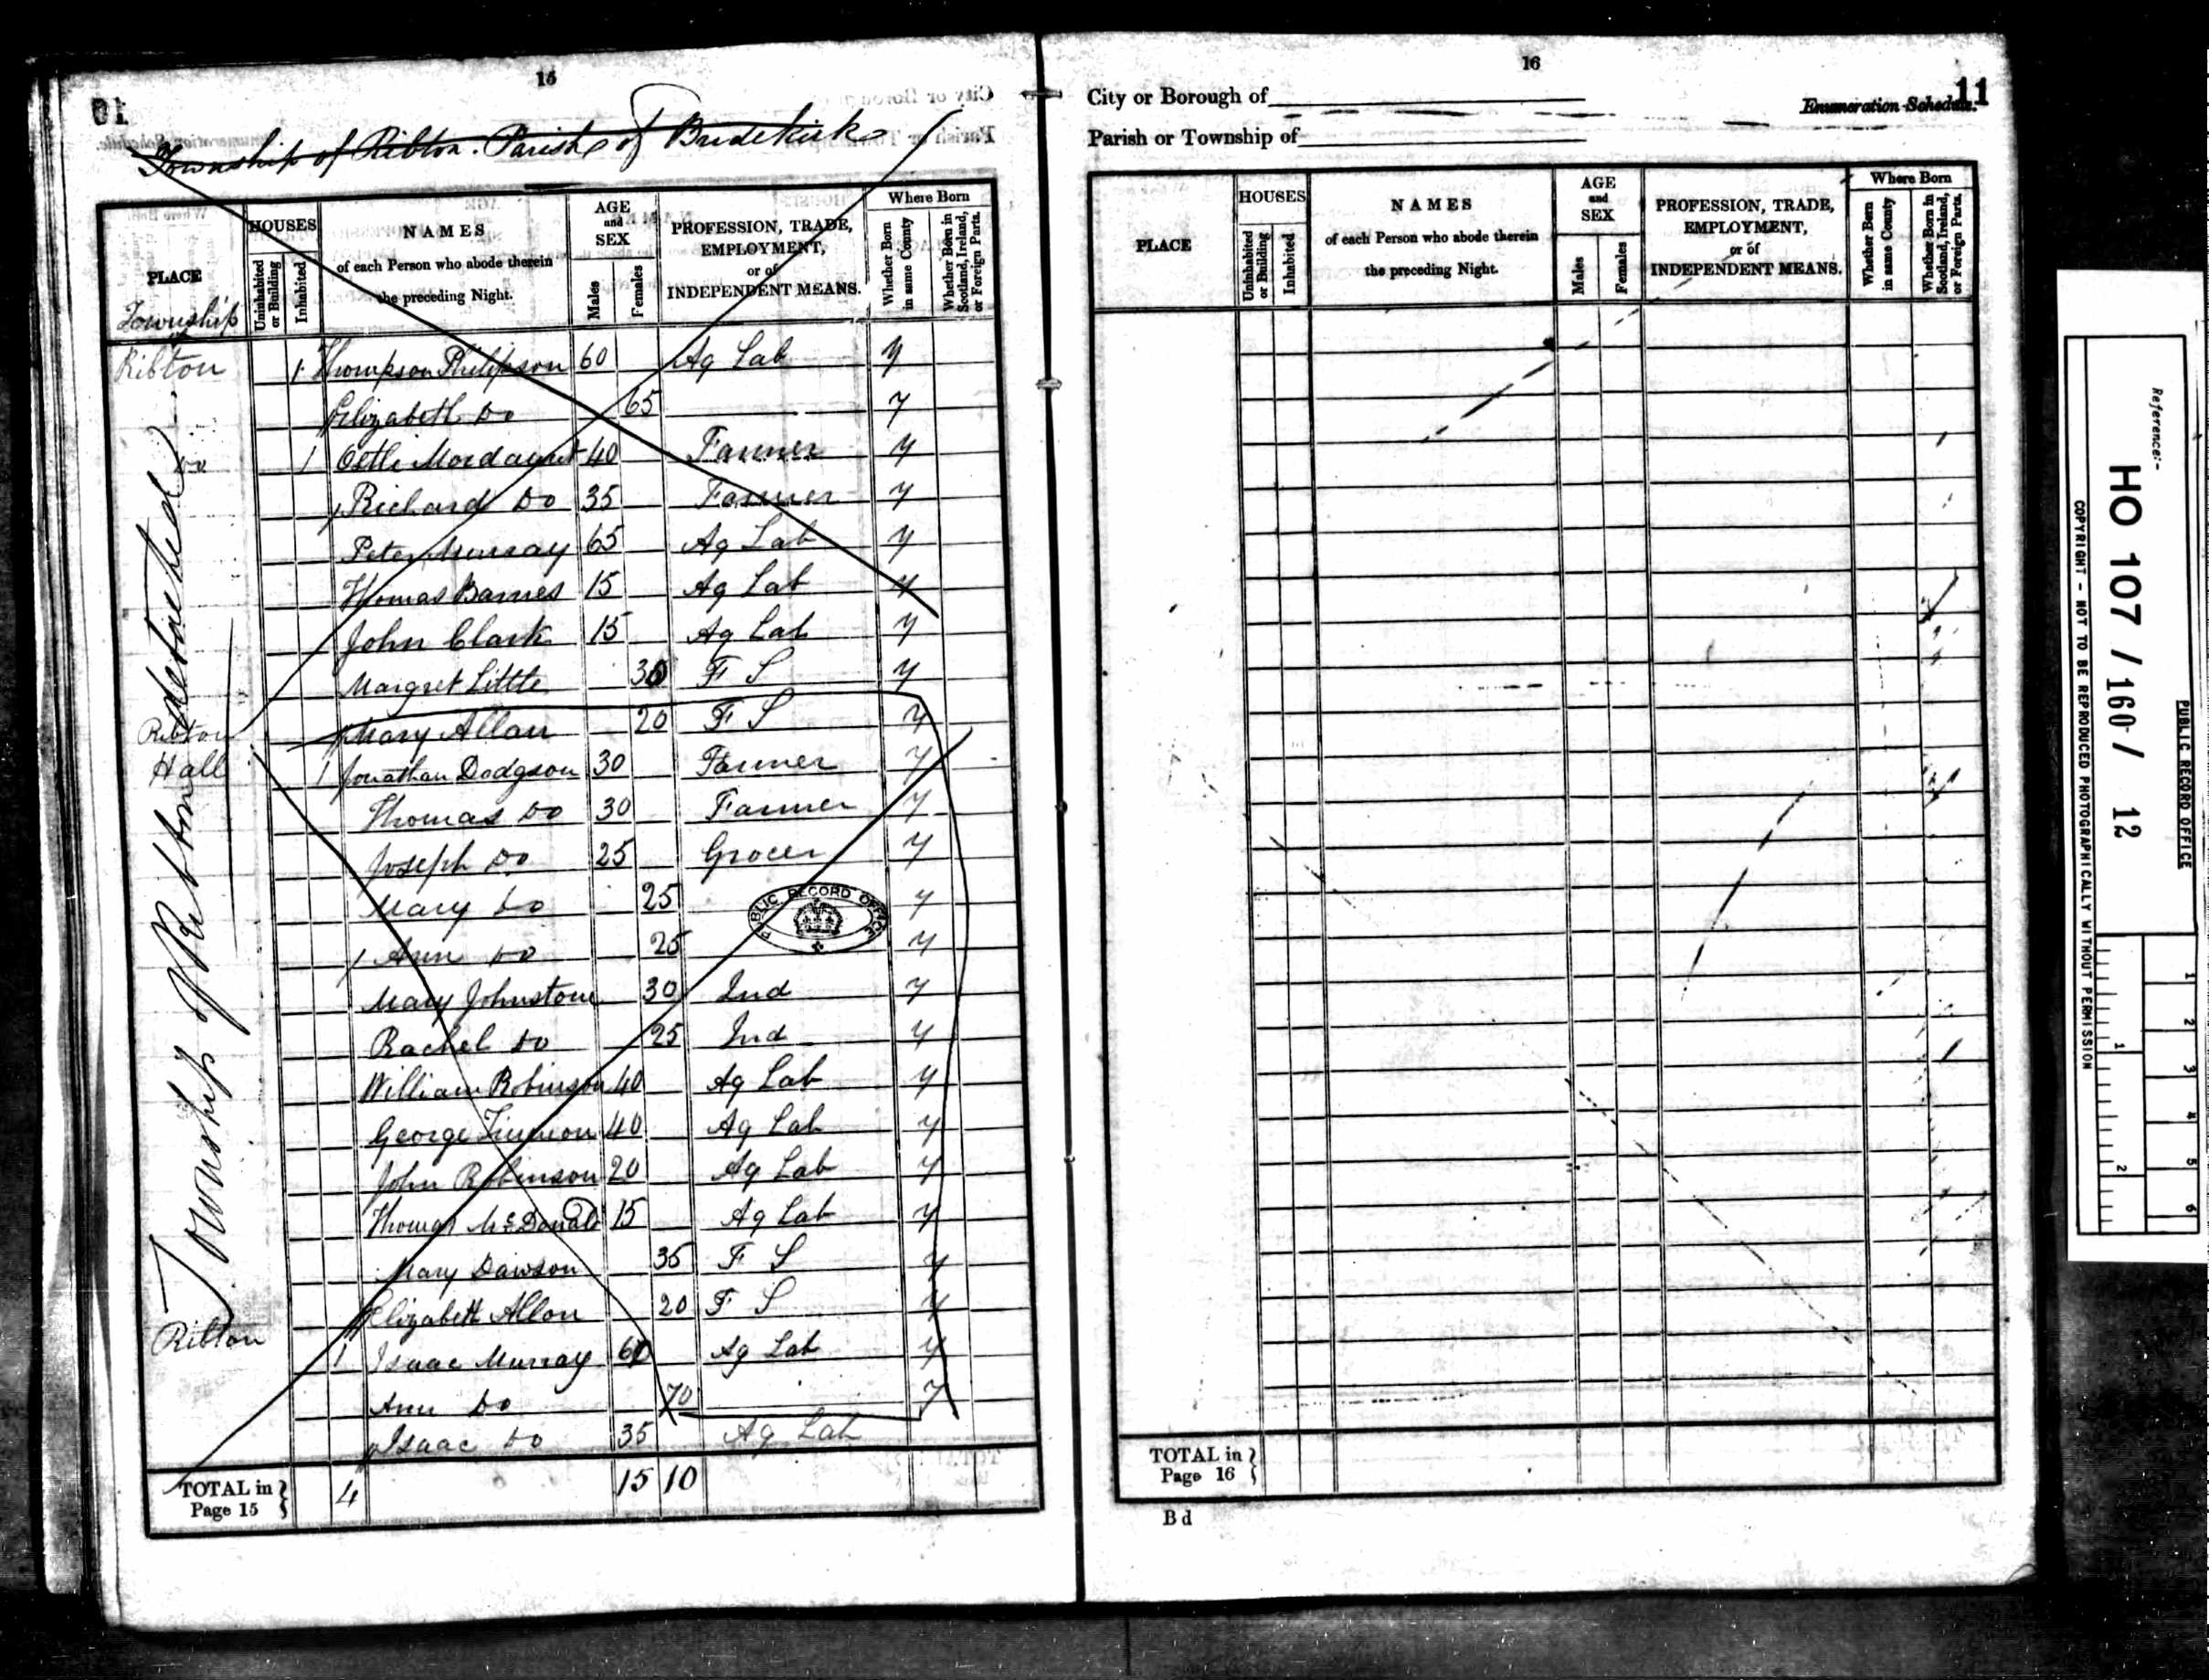 15
Township of Ribton. Parish of Bridekirk
PLACE
HOUSES
Uninhabited or Building
Inhabited
NAMES
of each Person who abode therein
the preceding Night.
AGE
and
SEX
Males
Females
PROFESSION, TRADE,
EMPLOYMENT,
or of
INDEPENDENT MEANS.
Where Born
Whether Born in same County
Whether Born in Scotland, Ireland, or Foreign Parts.
Township
Ribton 1 Thompson Philipson 60 Ag Lab y
Elizabeth Do 65 y
Do 1 Mordaunt 40 Farmer y
Richard Do 35 Farmer y
Peter Murray 65 Ag Lab y
Thomas Barnes 15 Ag Lab y
John Clark 15 Ag Lab y
Margret Little 30 F S y
Ribton Mary Allan 20 F S y
Hall 1 Jonathan Dodgson 30 Farmer y
Thomas Do 30 Farmer y
Joseph Do 25 Grocer y
Mary Do 25 y
Ann Do 25 y
Mary Johnstone 30 Ind y
Rachel Do 25 Ind y
William Robinson 40 Ag Lab y
George 40 Ag Lab y
John Robinson 20 Ag Lab y
Thomas McDonald 15 Ag Lab y
Mary Dawson 35 F S y
Elizabeth Allon 20 F S y
Ribton 1 Isaac Murray Ag Lab y
Ann Do 70 y
Isaac Do 35 Ag Lab
TOTAL in
Page 15
4 15 10
Township of Ribton detached
PUBLIC RECORD OFFICE
16
City or Borough of
11
Enumeration Schedule.
Parish or Township of
PLACE
HOUSES
Uninhabited or Building
Inhabited
NAMES
of each Person who abode therein
the preceding Night.
AGE
and
SEX
Males
Females
PROFESSION, TRADE,
EMPLOYMENT,
or of
INDEPENDENT MEANS.
Where Born
Whether Born in same County
Whether Born in Scotland, Ireland, or Foreign Parts.
TOTAL in
Page 16
B d
PUBLIC RECORD OFFICE
Reference:-
HO 107 / 160 / 12
COPYRIGHT - NOT TO BE REPRODUCED PHOTOGRAPHICALLY WITHOUT PERMISSION
1 2 3 4 5 6
1 2